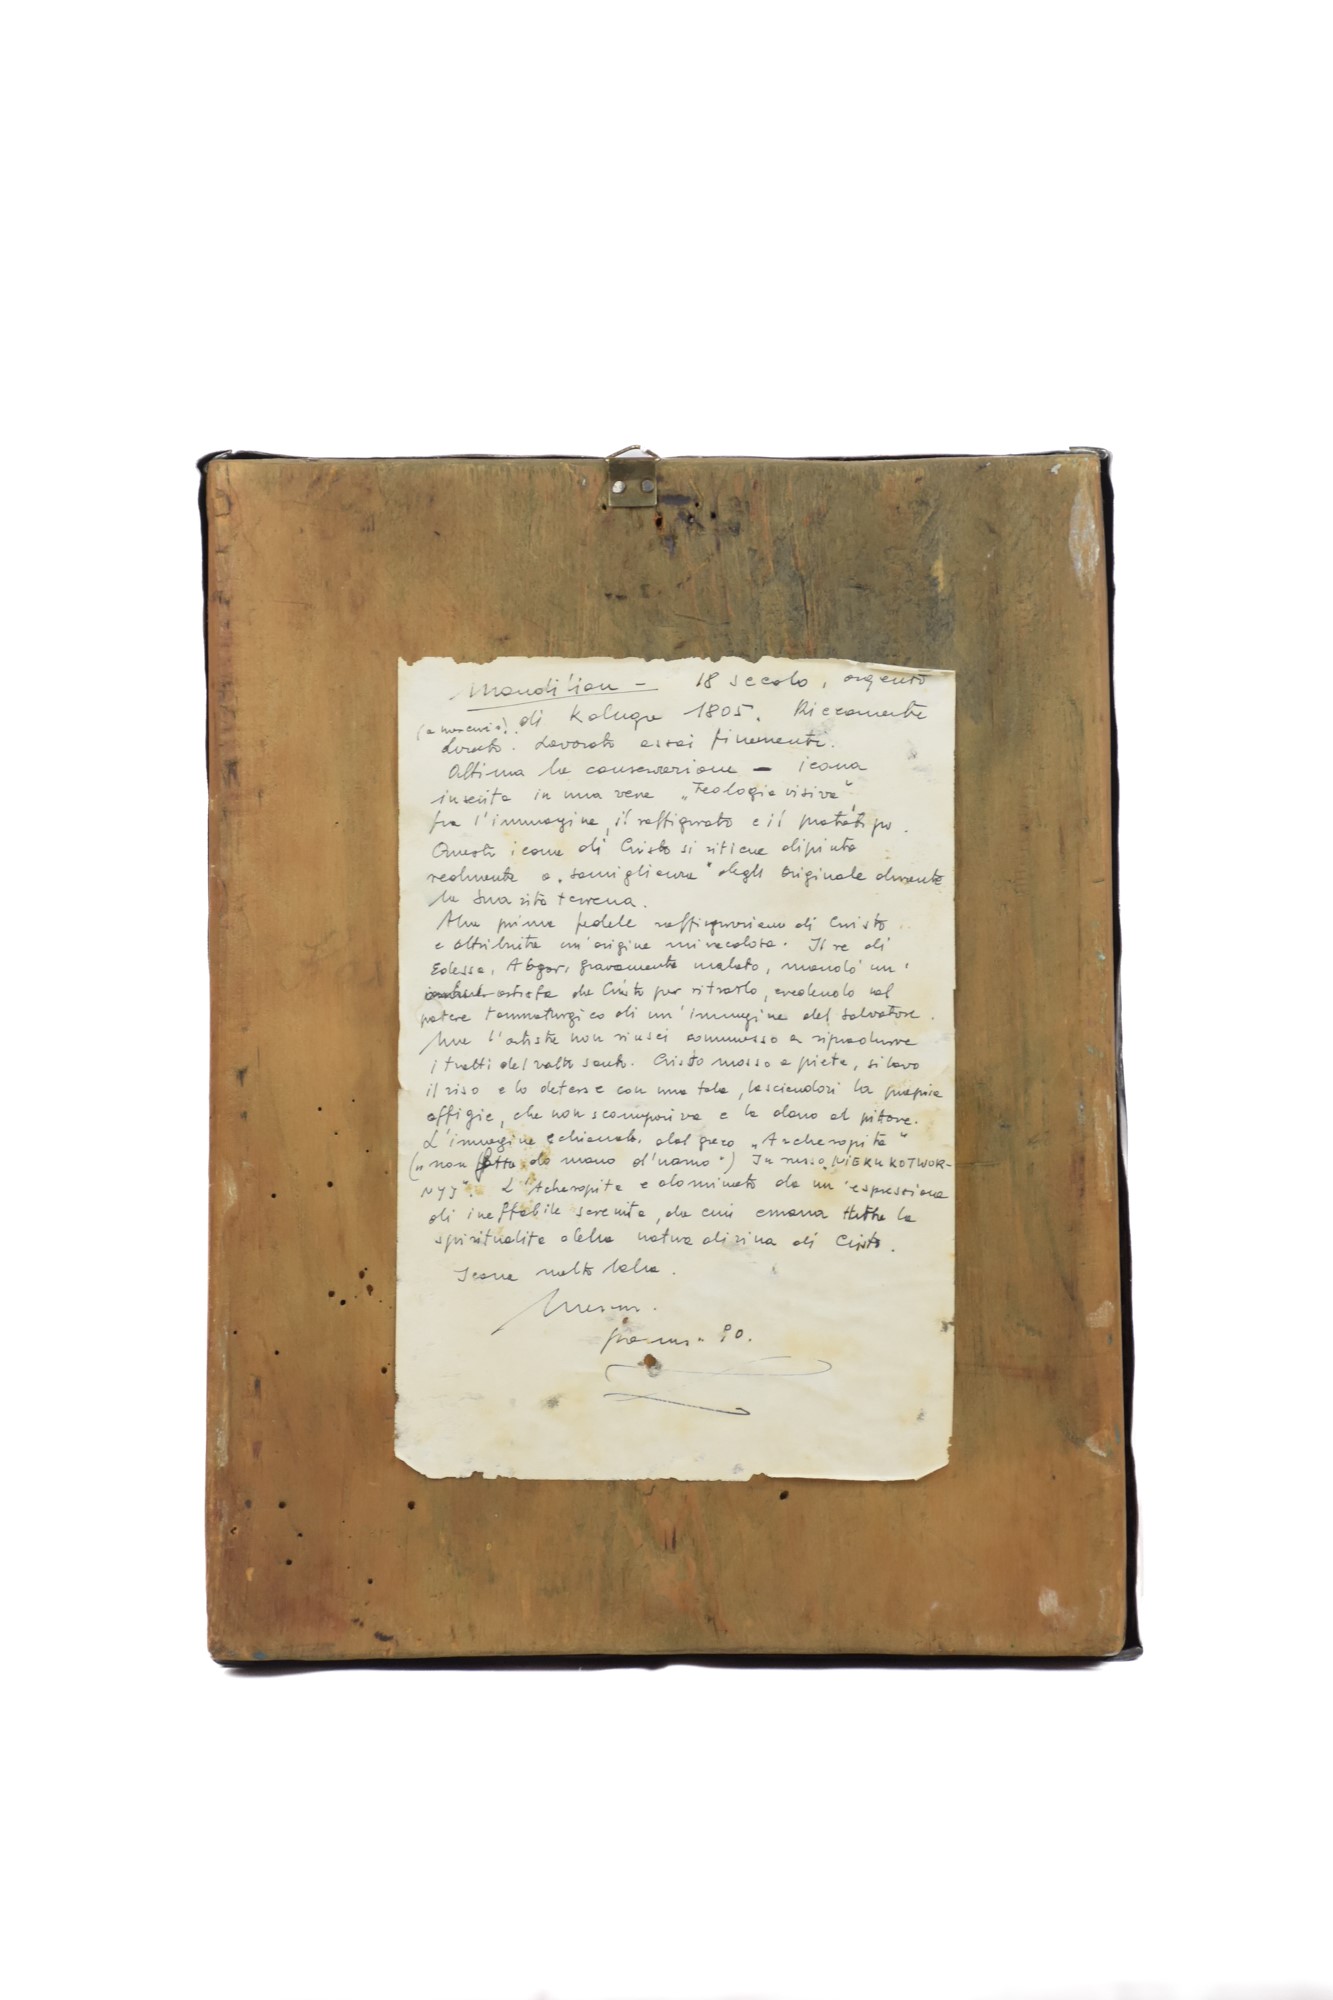 Mandilion - 18 secolo, argento
di Kaluga 1805. Riccamente
(a mercurio)
dorato. Lavorato assai finemente.
Ottima la conservazione - icona
inserita in una vera "Teologia visiva"
fra l'immagine, il raffigurato e il prototipo.
Questa icona di Cristo si ritiene dipinta
realmente a "somiglianza" degli Originale durante
la Sua vita terrena.
Alla prima fedele raffigurazione di Cristo
e attribuita un'origine miracolosa. Il re di
Edessa, Abgar, gravemente malato, mandò un'
artista da Cristo per ritrarlo, credendo nel
potere taumaturgico di un'immagine del Salvatore.
Ma l'artista non riusci commosso a riprodurre
i tratti del volto santo. Cristo mosso a pieta, si lavo
il viso e lo deterse con una tela, lasciandovi la propria
effigie, che non scompariva e la dono al pittore.
L'immagine e chiamata dal greco "Archeropita"
("non fatta da mano d'uomo") In russo "NIERUKOTWOR-
NYJ". L'Acheropita e dominata da un'espressione
di ineffabile serenita, da cui emana tutta la
spiritualita della natura divina di Cristo.
Icona molto bella.
90.